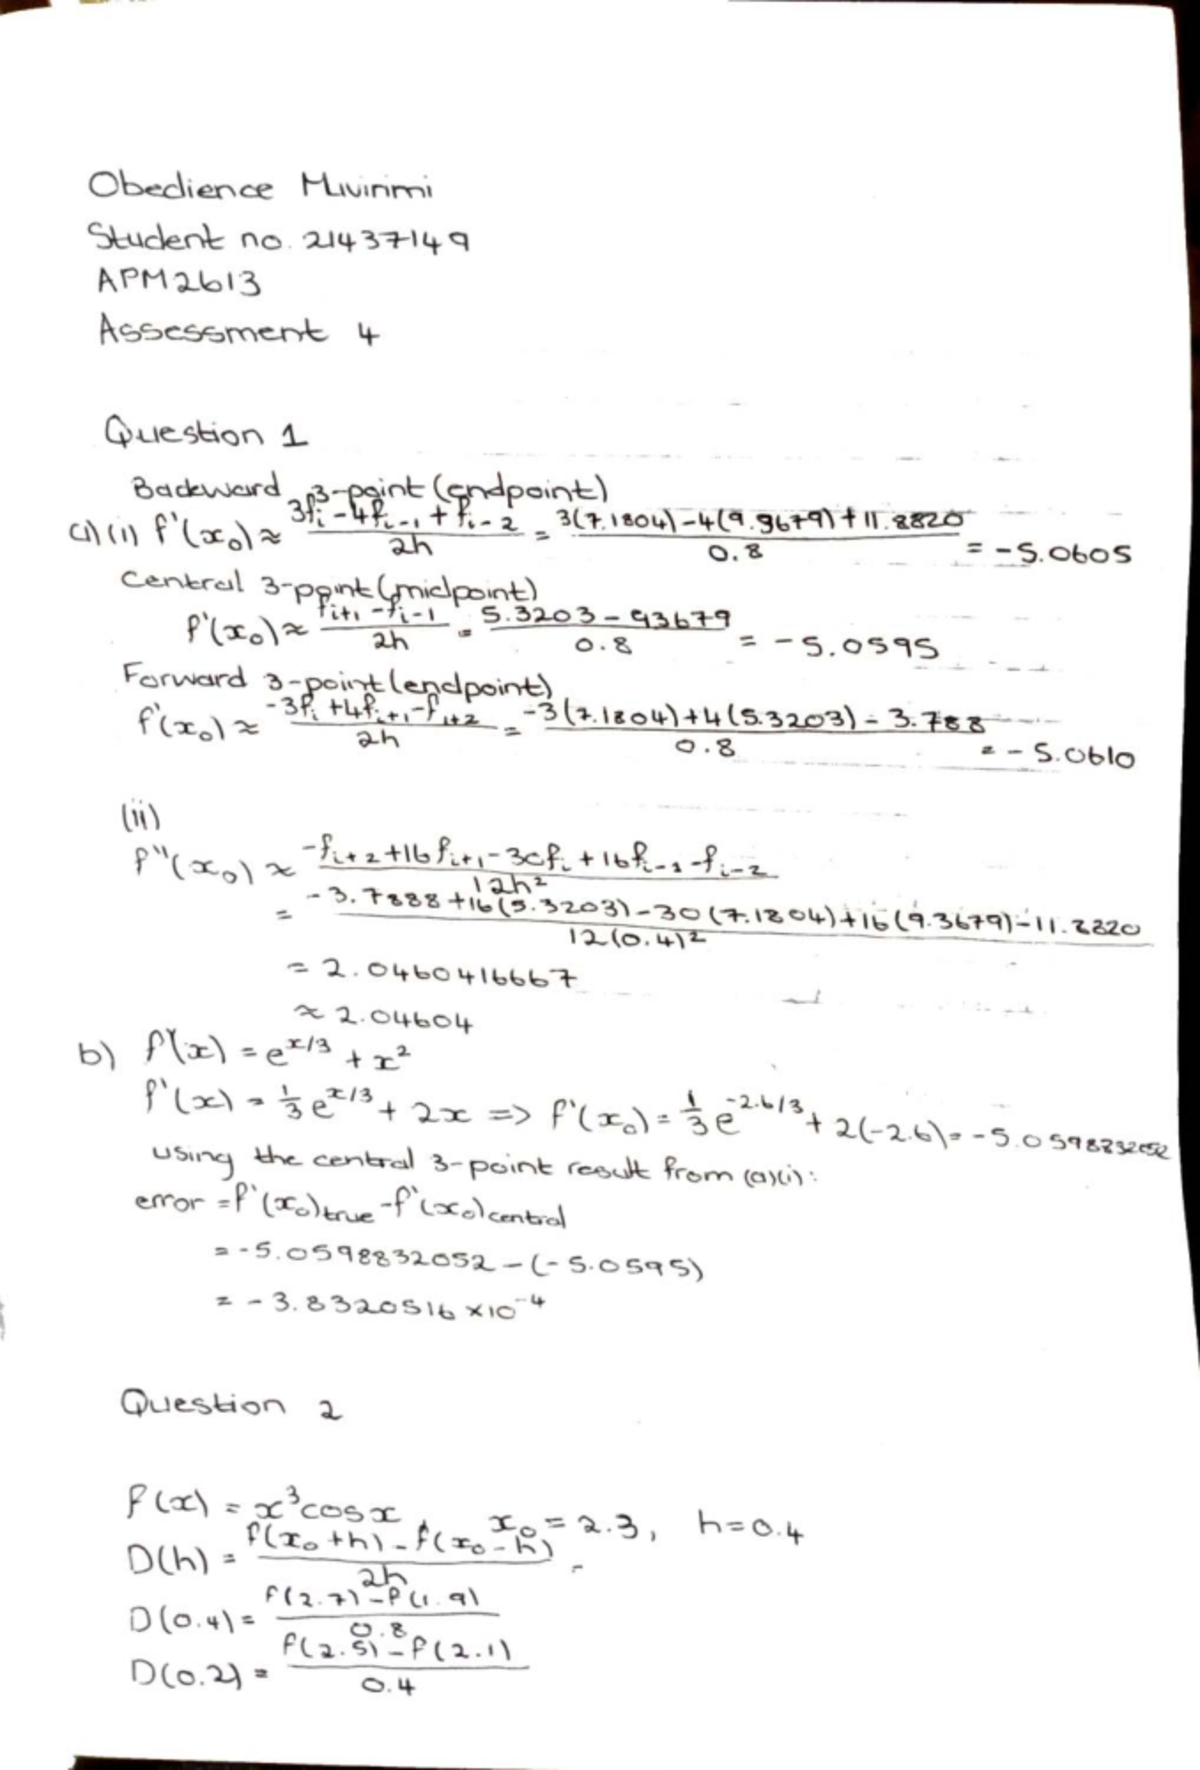 Obedience Mivirimi
Student no. 21437149
APM2613
Assessment 4
Question 1
Backward 3-point (endpoint)
a) (i) f'(x₀) ≈ (3fᵢ - 4fᵢ₋₁ + fᵢ₋₂)/2h = (3(7.1804) - 4(9.3679) + 11.8820)/0.8 = -5.0605
Central 3-point (midpoint)
f'(x₀) ≈ (fᵢ₊₁ - fᵢ₋₁)/2h = (5.3203 - 93679)/0.8 = -5.0595
Forward 3-point (endpoint)
f'(x₀) ≈ (-3fᵢ + 4fᵢ₊₁ - fᵢ₊₂)/2h = (-3(7.1804) + 4(5.3203) - 3.788)/0.8 = -5.0610
(ii)
f''(x₀) ≈ (-fᵢ₊₂ + 16fᵢ₊₁ - 30fᵢ + 16fᵢ₋₁ - fᵢ₋₂)/12h²
= (-3.7888 + 16(5.3203) - 30(7.1804) + 16(9.3679) - 11.8820)/12(0.4)²
= 2.0460416667
≈ 2.04604
b) f(x) = e^(x/3) + x²
f'(x) = 1/3 e^(x/3) + 2x => f'(x₀) = 1/3 e^(-2.6/3) + 2(-2.6) = -5.0598832052
using the central 3-point result from (a)(i):
error = f'(x₀)true - f'(x₀)central
= -5.0598832052 - (-5.0595)
= -3.8320516 x10⁻⁴
Question 2
f(x) = x³cosx, x₀ = 2.3, h=0.4
D(h) = (f(x₀ + h) - f(x₀ - h))/2h
D(0.4) = (f(2.7) - f(1.9))/0.8
D(0.2) = (f(2.5) - f(2.1))/0.4